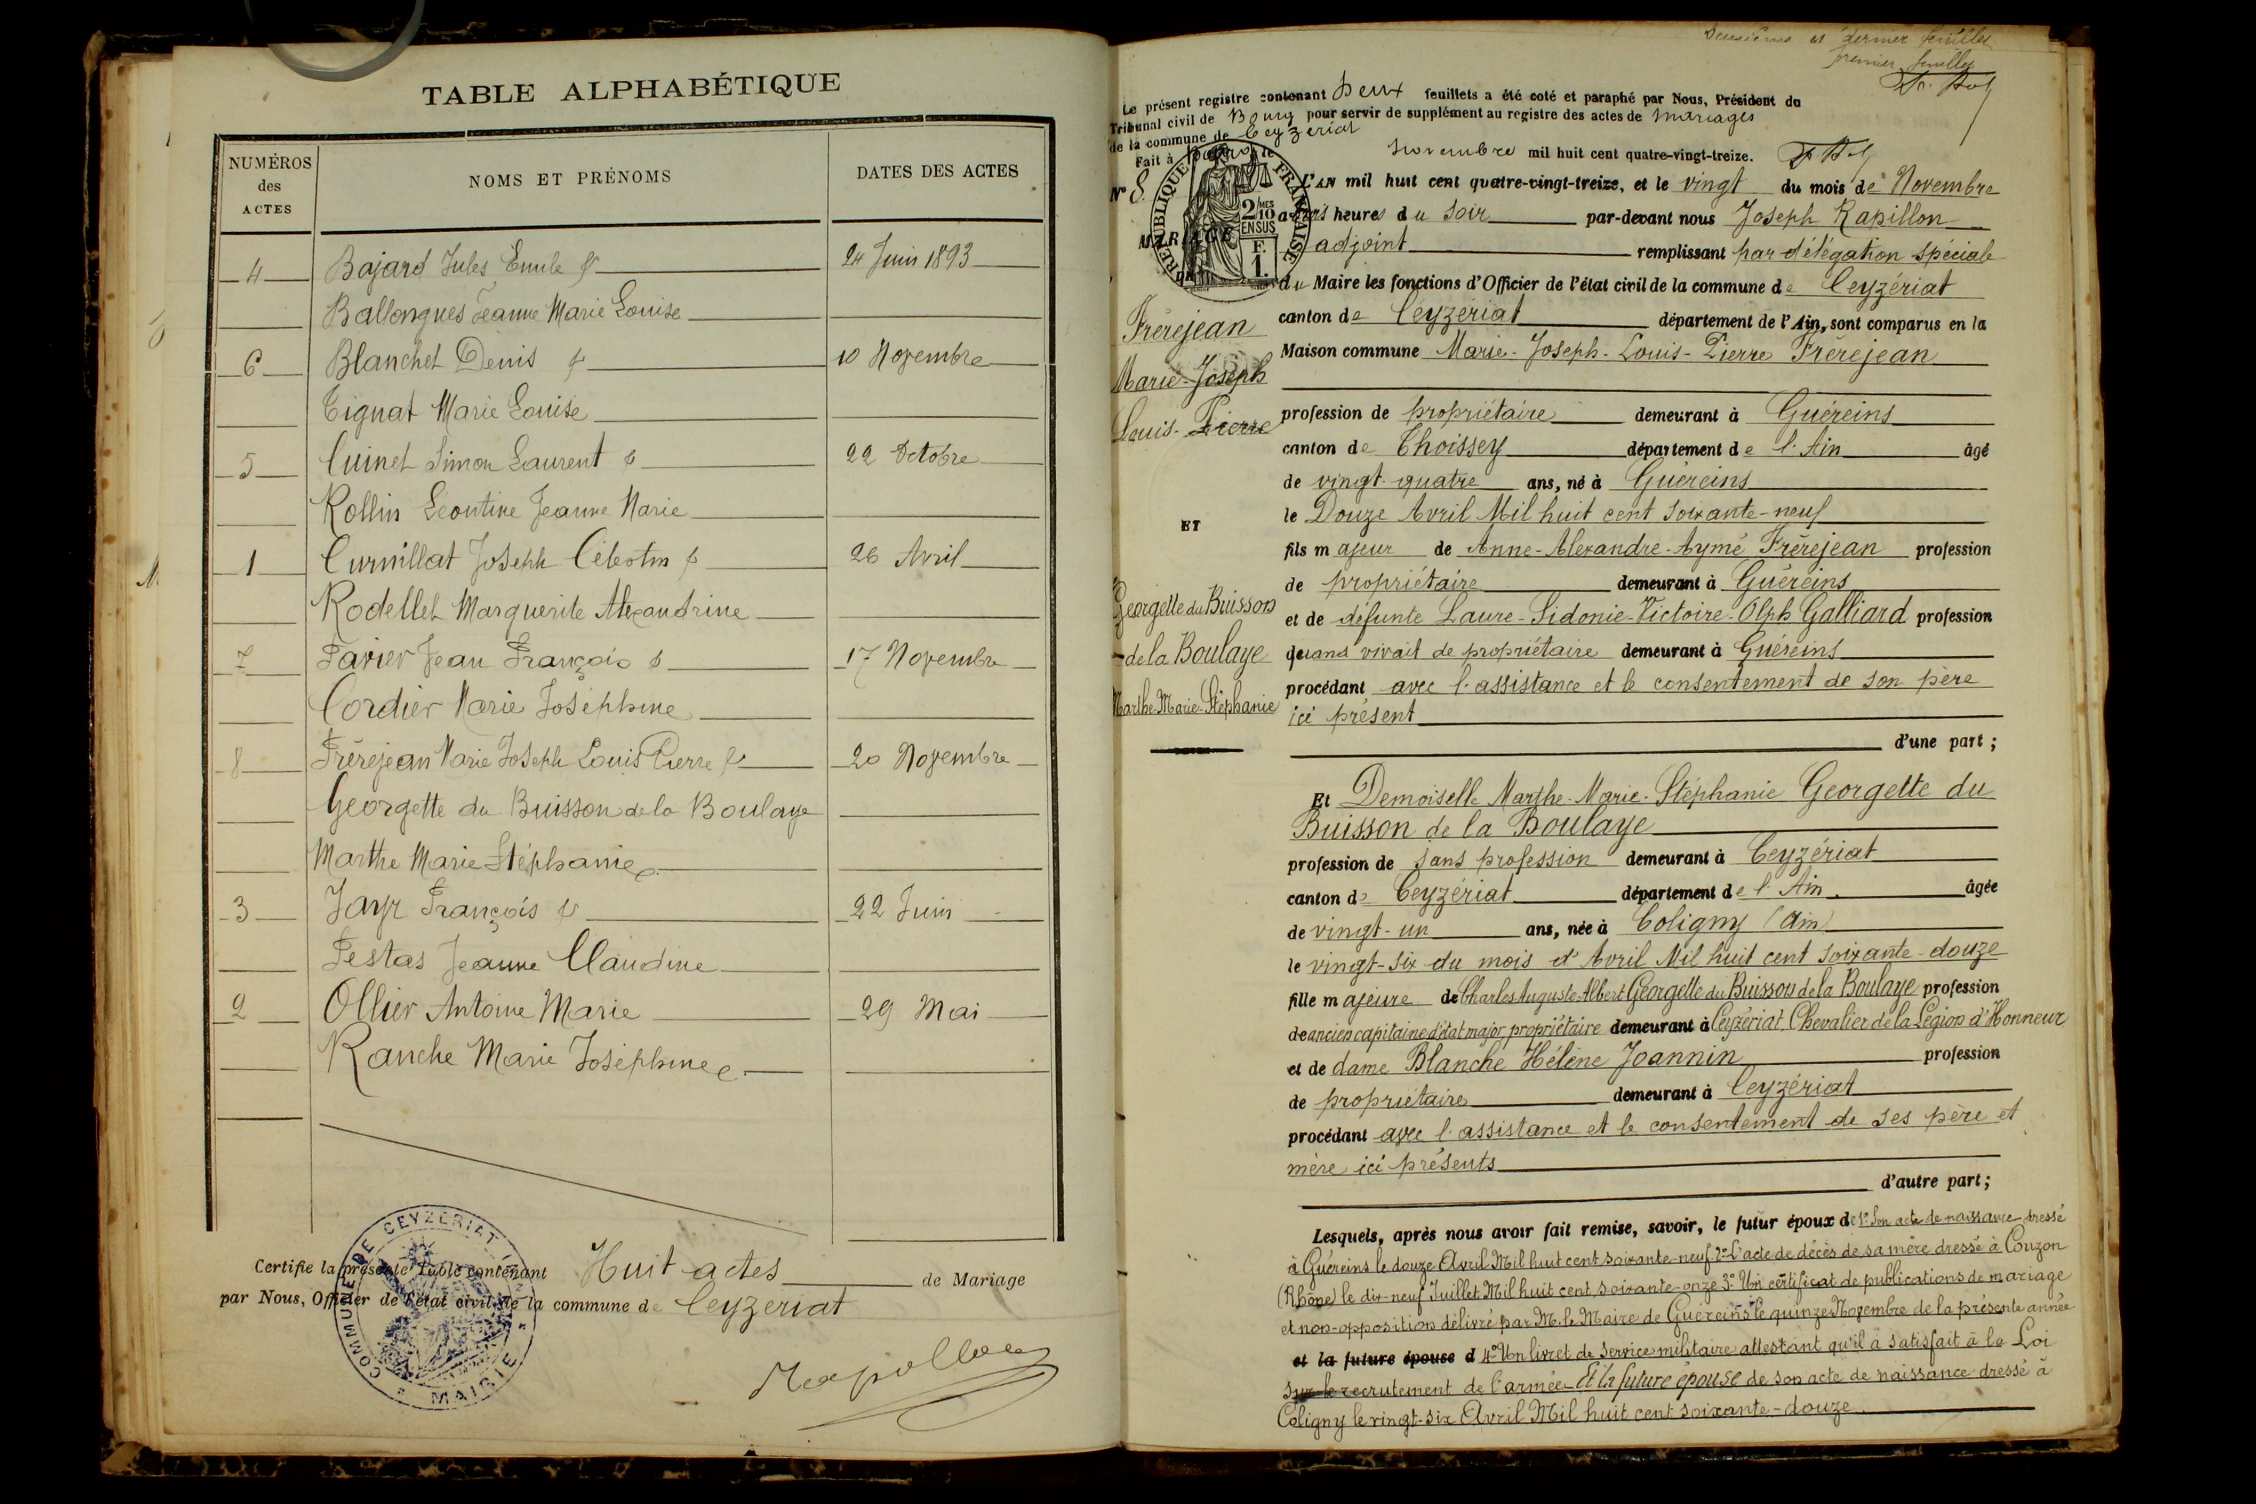 TABLE ALPHABÉTIQUE
NUMÉROS
des
ACTES
NOMS ET PRÉNOMS
DATES DES ACTES
4 Bajard Jules Emile 24 Juin 1893
Ballongues Jeanne Marie Louise
6 Blanchet Denis 10 Novembre
Tignat Marie Louise
5 Cuinet Simon Laurent 22 Octobre
Rollin Léontine Jeanne Marie
1 Curnillat Joseph Célestin 26 Avril
Rodellet Marguerite Alexandrine
7 Favier Jean François 17 Novembre
Cordier Marie Joséphine
8 Frèrejean Marie Joseph Louis Pierre 20 Novembre
Georgette du Buisson de la Boulaye
Marthe Marie Stéphanie
3 Jayr François 22 Juin
Festas Jeanne Claudine
2 Ollier Antoine Marie 29 Mai
Ranche Marie Joséphine
Certifie la présente Table contenant Huit actes de Mariage
par Nous, Officier de l'état civil de la commune de Ceyzeriat
COMMUNE DE CEYZERIAT
MAIRIE
Rapillon
Deuxième et dernier feuillet
premier feuillet
Le présent registre contenant Deux feuillets a été coté et paraphé par Nous, Président du
Tribunal civil de Bourg pour servir de supplément au registre des actes de mariages
de la commune de Ceyzeriat
Fait à Bourg, le novembre mil huit cent quatre-vingt-treize.
RÉPUBLIQUE FRANÇAISE
2/10 MES
EN SUS
F.
1.
N° 8.
MARIAGE
DE
Frèrejean
Marie-Joseph
Louis-Pierre
ET
Georgette du Buisson
de la Boulaye
Marthe-Marie-Stéphanie
L'AN mil huit cent quatre-vingt-treize, et le vingt du mois de Novembre
heures du soir par-devant nous Joseph Rapillon
adjoint remplissant par délégation spéciale
du Maire les fonctions d'Officier de l'état civil de la commune de Ceyzériat
canton de Ceyzériat département de l'Ain, sont comparus en la
Maison commune Marie-Joseph-Louis-Pierre Frèrejean
profession de propriétaire demeurant à Guéreins
canton de Thoissey département de l'Ain âgé
de vingt-quatre ans, né à Guéreins
le Douze Avril Mil huit cent soixante-neuf
fils majeur de Anne-Alexandre-Aymé Frèrejean profession
de propriétaire demeurant à Guéreins
et de défunte Laure-Sidonie-Victoire-Olph Galliard profession
quand vivait de propriétaire demeurant à Guéreins
procédant avec l'assistance et le consentement de son père
ici présent
d'une part ;
Et Demoiselle Marthe-Marie-Stéphanie Georgette du
Buisson de la Boulaye
profession de sans profession demeurant à Ceyzériat
canton de Ceyzériat département de l'Ain âgée
de vingt-un ans, née à Coligny (Ain)
le vingt-six du mois d'Avril Mil huit cent soixante-douze
fille majeure de Charles Auguste Albert Georgette du Buisson de la Boulaye profession
de ancien capitaine d'état major, propriétaire demeurant à Ceyzériat Chevalier de la Légion d'Honneur
et de dame Blanche Hélène Joannin profession
de propriétaire demeurant à Ceyzériat
procédant avec l'assistance et le consentement de ses père et
mère ici présents
d'autre part ;
Lesquels, après nous avoir fait remise, savoir, le futur époux de 1° Son acte de naissance dressé
à Guéreins le douze Avril Mil huit cent soixante-neuf 2° l'acte de décès de sa mère dressé à Couzon
(Rhône) le dix-neuf Juillet Mil huit cent soixante-onze 3° Un certificat de publications de mariage
et non-opposition délivré par M. le Maire de Guéreins le quinze Novembre de la présente année
et la future épouse d 4° Un livret de service militaire attestant qu'il a satisfait à la Loi
sur le recrutement de l'armée Et la future épouse de son acte de naissance dressé à
Coligny le vingt-six Avril Mil huit cent soixante-douze